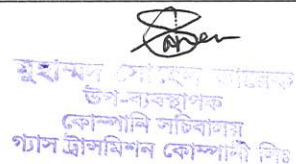 মুহাম্মদ সোহেল
উপ-ব্যবস্থাপক
কোম্পানি সচিবালয়
গ্যাস ট্রান্সমিশন কোম্পানী লিঃ